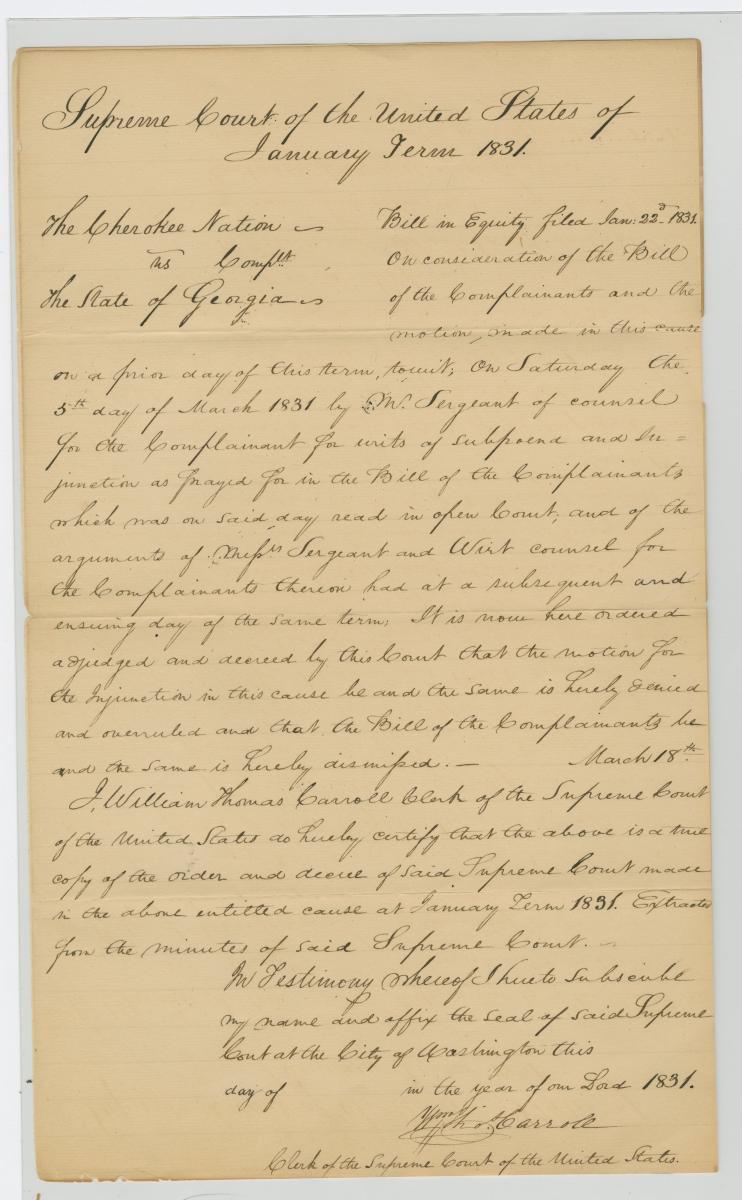 Supreme Court of the United States of
January Term 1831.
The Cherokee Nation
Bill in Equity filed Jan: 22d 1831.
vs Complt
On consideration of the Bill
The State of Georgia
of the Complainants and the
motion, made in this cause
on a prior day of this term, towit; On Saturday the
5th day of March 1831 by Mr. Sergeant of counsel
for the Complainant for writs of subpoena and In=
junction as prayed for in the Bill of the Complainants
which was on said day read in open Court; and of the
arguments of Messrs Sergeant and Wirt counsel for
the Complainants thereon had at a subsequent and
ensuing day of the same term; It is now here ordered
adjudged and decreed by this Court that the motion for
the Injunction in this cause be and the same is hereby denied
and overruled and that the Bill of the Complainants be
and the same is hereby dismissed. — March 18th.
I, William Thomas Carroll Clerk of the Supreme Court
of the United States do hereby certify that the above is a true
copy of the order and decree of said Supreme Court made
in the above entitled cause at January Term 1831. Extracted
from the minutes of said Supreme Court.
In Testimony whereof I hereto subscribe
my name and affix the seal of said Supreme
Court at the City of Washington this
day of in the year of our Lord 1831.
Wm Thos. Carroll
Clerk of the Supreme Court of the United States.